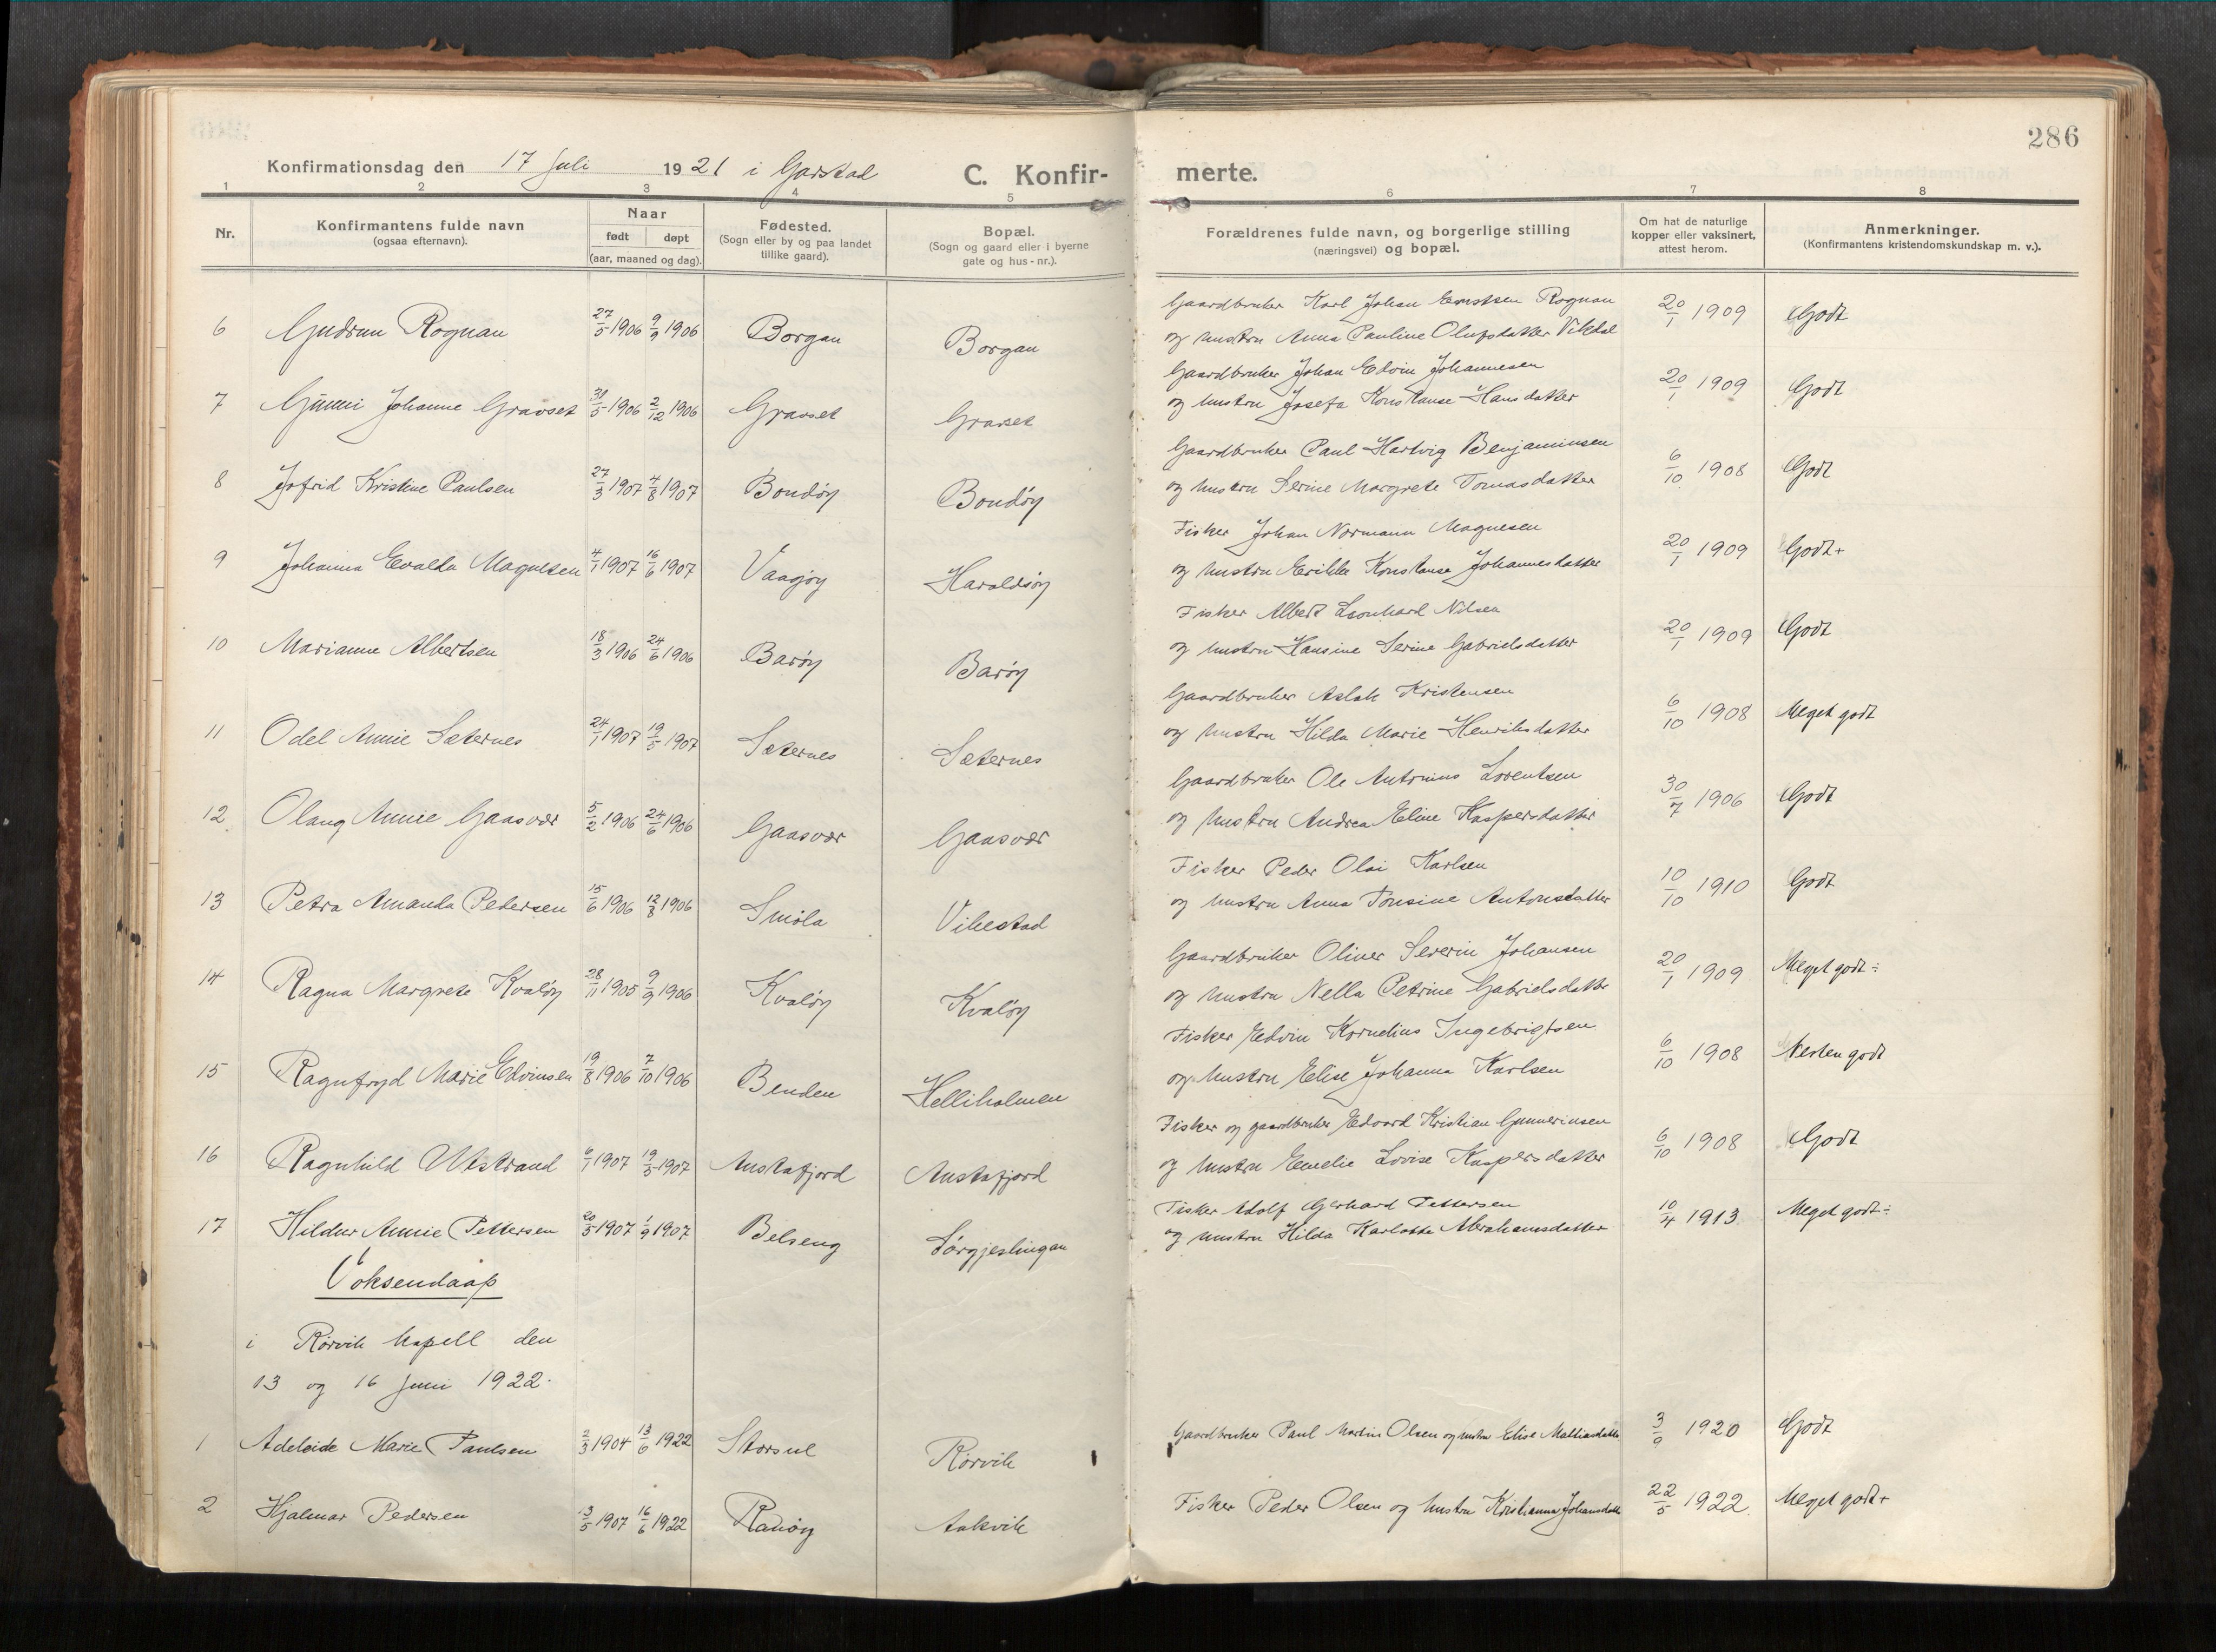 286
Konfirmationsdag den 17 Juli 1921 i Garstad C. Konfirmerte.
1 2 3 4 5 6 7 8
Nr.
Konfirmantens fulde navn (ogsaa efternavn).
Naar født døpt (aar, maaned og dag).
Fødested. (Sogn eller by og paa landet tillike gaard).
Bopæl. (Sogn og gaard eller i byerne gate og hus-nr.).
Forældrenes fulde navn, og borgerlige stilling (næringsvei) og bopæl.
Om hat de naturlige kopper eller vaksinert, attest herom.
Anmerkninger. (Konfirmantens kristendomskundskap m. v.).
6 Gudrun Rognan 27/5 1906 9/9 1906 Borgan Borgan Gaardbruker Karl Johan Ernstsen Rognan 20/1 1909 Godt
og hustru Anna Pauline Olufsdatter Vikdal
7 Gunni Johanne Gravset 30/5 1906 2/12 1906 Gravset Gravset Gaardbruker Johan Edvin Johannesen 20/1 1909 Godt
og hustru Josefa Konstanse Hansdatter
8 Jofrid Kristine Paulsen 27/3 1907 4/8 1907 Bondøy Bondøy Gaardbruker Paul Hartvig Benjaminsen 6/10 1908 Godt
og hustru Serine Margrete Tomasdatter
9 Johanna Evalda Magnesen 4/1 1907 16/6 1907 Vaagøy Haraldsøy Fisker Johan Normann Magnesen 20/1 1909 Godt+
og hustru Erikka Konstanse Johannesdatter
10 Marianne Albertsen 18/3 1906 24/6 1906 Barøy Barøy Fisker Albert Leonhard Nilsen 20/1 1909 Godt
og hustru Hansine Serine Gabrielsdatter
11 Odel Annie Sæternes 24/1 1907 19/5 1907 Sæternes Sæternes Gaardbruker Aslak Kristensen 6/10 1908 Meget godt
og hustru Hilda Marie Henriksdatter
12 Olaug Annie Gaasvær 5/2 1906 24/6 1906 Gaasvær Gaasvær Gaardbruker Ole Antonius Lorentsen 30/7 1906 Godt
og hustru Andrea Eline Kaspersdatter
13 Petra Amanda Pedersen 15/6 1906 12/8 1906 Smøla Vikestad Fisker Peder Olai Karlsen 10/10 1910 Godt
og hustru Anna Tonsine Antonsdatter
14 Ragna Margrete Kvaløy 28/11 1905 9/9 1906 Kvaløy Kvaløy Gaardbruker Oliver Severin Johansen 20/1 1909 Meget godt÷
og hustru Nella Petrine Gabrielsdatter
15 Ragnfryd Marie Edvinsen 19/8 1906 7/10 1906 Benden Helliholmen Fisker Edvin Kornelius Ingebrigtsen 6/10 1908 Nesten godt
og hustru Elise Johanna Karlsen
16 Ragnhild Utstrand 6/1 1907 19/5 1907 Austafjord Austafjord Fisker og gaardbruker Edvard Kristian Gunnerinsen 6/10 1908 Godt
og hustru Emelie Lovise Kaspersdatter
17 Hildur Annie Pettersen 20/5 1907 1/9 1907 Belseng Sørgjeslingan Fisker Adolf Gerhard Pettersen 10/4 1913 Meget godt÷
og hustru Hilda Karlotte Abrahamsdatter
Voksendaap
i Rørvik kapell den
13 og 16 Juni 1922.
1 Adeleide Marie Paulsen 2/3 1904 13/6 1922 Storsul Rørvik Gaardbruker Paul Martin Olsen og hustru Elise Mattiasdatter 3/9 1920 Godt
2 Hjalmar Pedersen 13/5 1907 16/6 1922 Ramøy Aakvik Fisker Peder Olsen og hustru Kristianna Johansdatter 22/5 1922 Meget godt+